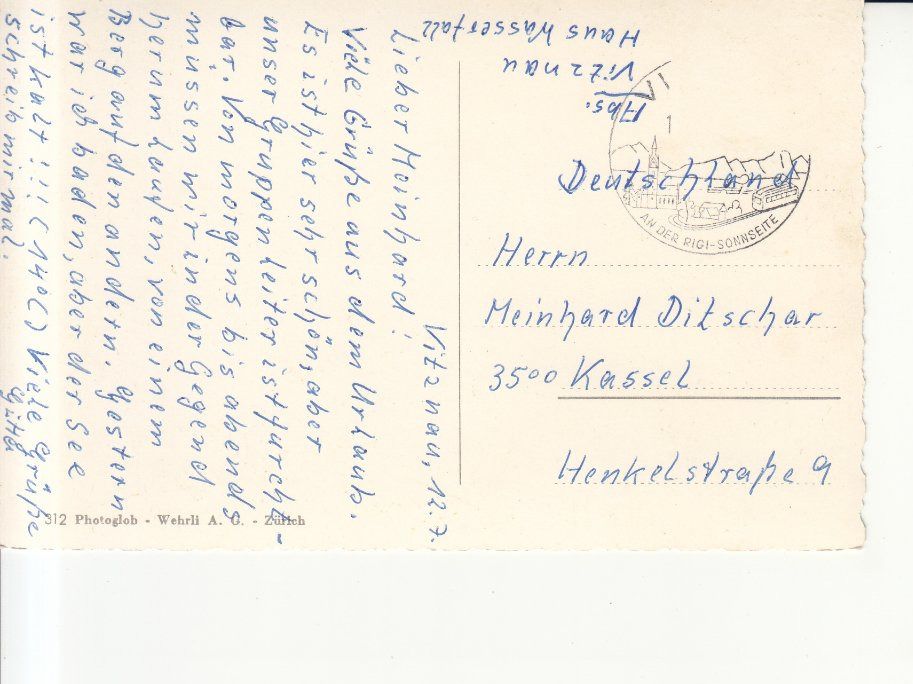 Vitznau, 12.7.
Lieber Meinhard!
Viele Grüße aus dem Urlaub.
Es ist hier sehr schön, aber
unser Gruppenleiter ist furcht-
bar. Von morgens bis abends
müssen wir in der Gegend
herum laufen, von einem
Berg auf den andern. Gestern
war ich baden, aber der See
ist kalt!!! (14°C) Viele Grüße
schreib mir mal.
312 Photoglob - Wehrli A. G. - Zürich
Abs.
Vitznau
Haus Wasserfall
VI
1
AN DER RIGI-SONNSEITE
Deutschland
Herrn
Meinhard Ditschar
3500 Kassel
Henkelstraße 9